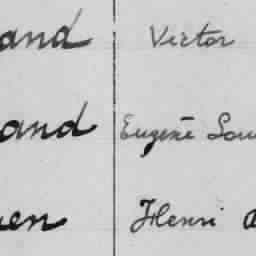 and Victor
and Eugène Lou
en Henri